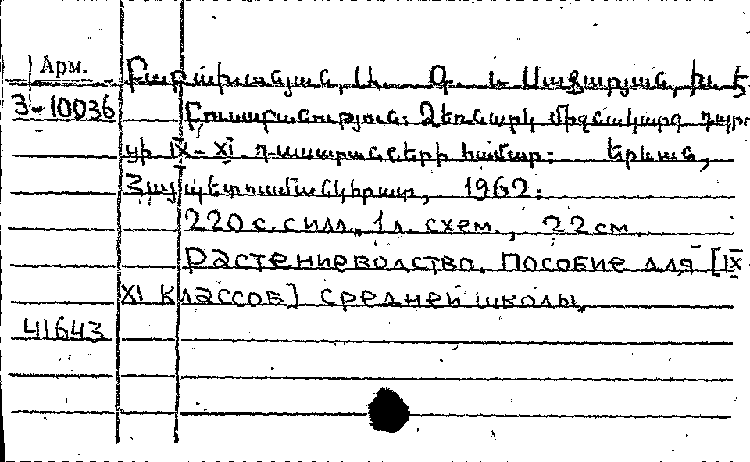 Арм.
Բաբախանյան, Ա. Օ. և Սաֆարյան, Խ. Է
3-10036
Բուսաբուծություն: Ձեռնարկ միջնակարգ դպրո
ցի IX-XI դասարանների համար: Երևան,
Հայպետուսմանկհրատ, 1962:
220 с. с илл., 1 л. схем., 22 см.
Растениеводство. Пособие для [IX
XI классов] средней школы.
41643